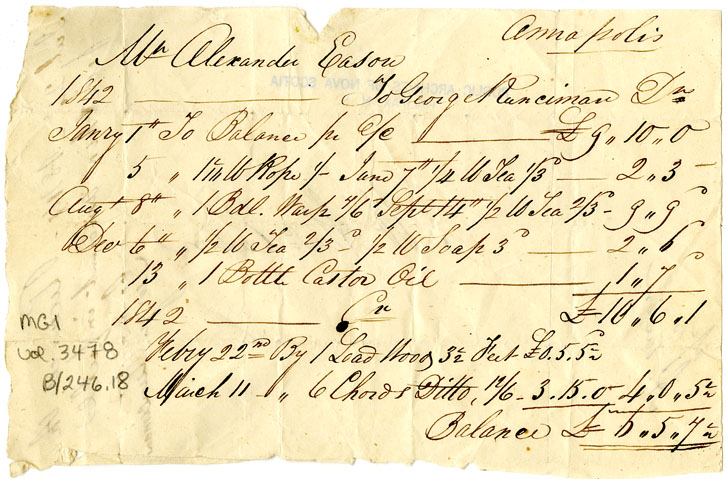 Annapolis
Mr Alexander Eason
1842 To George Runciman Dr
Janry 1st To Balance pr a/c £9,,10,,0
5 ,, 1 lb Rope 1/- June 7th 1/4 lb Tea 1/3 2,,3
Augt 8th ,, 1 Bdl. Warp 7/6 Sept 14th 1/2 lb Tea 2/3 - 9,,9
Dec 6th ,, 1/2 lb Tea 2/3 - 1/2 lb Soap 3d 2,,6
13 ,, 1 Bottle Castor Oil 1,,7
£10,,6,,1
1842 Cr
Febry 22nd By 1 Load Wood 3 1/2 Feet £0.5.5 1/2
March 11 - ,, 6 Chords Ditto, 12/6 - 3.15.0 4,,0,,5 1/2
Balance £6,,5,,7 1/2
MG1
vol. 3478
B/246.18
PUBLIC ARCHIVES OF NOVA SCOTIA